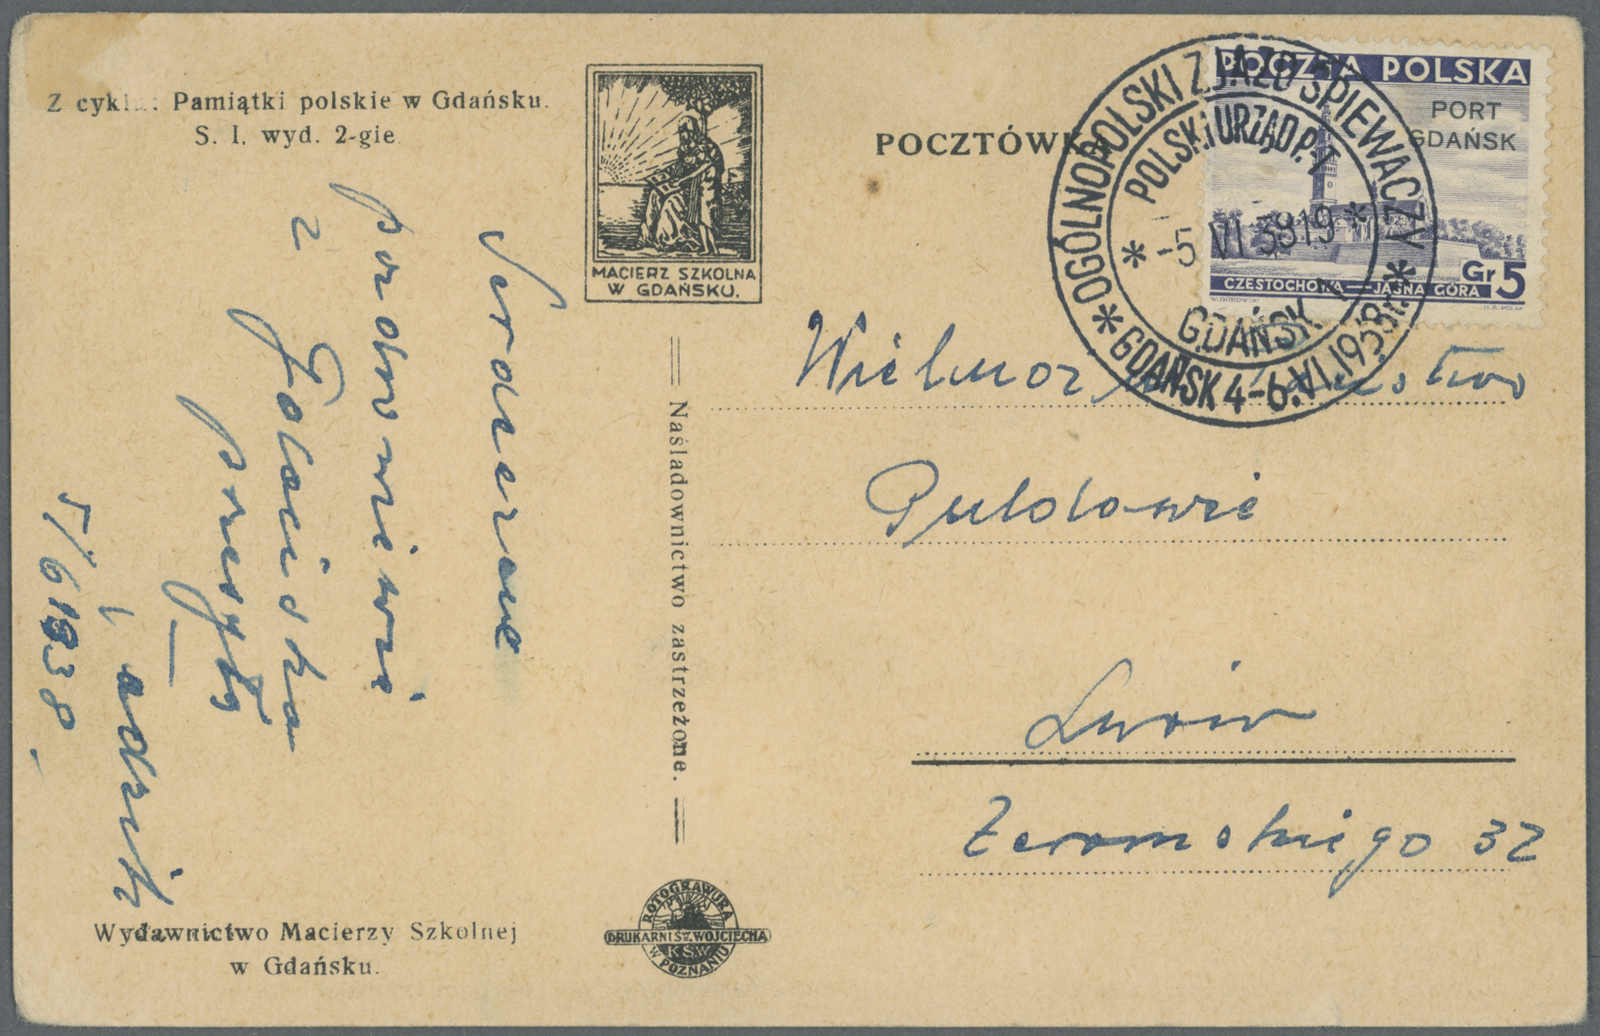 Z cyklu: Pamiątki polskie w Gdańsku.
S. I. wyd. 2-gie
MACIERZ SZKOLNA
W GDAŃSKU.
POCZTÓWKA
POCZTA POLSKA
PORT
GDAŃSK
CZĘSTOCHOWA — JASNA GÓRA
Gr 5
OGÓLNOPOLSKI ZJAZD ŚPIEWACZY
* GDAŃSK 4-6.VI.1938r. *
POLSKI URZĄD P.T
* -5 VI 38 19 *
GDAŃSK 1
Serdeczne
pozdrowienie
z
Gdańska
przesyła
5/6 1938.
Naśladownictwo zastrzeżone.
Wielmoż
Lwów
Żeromskiego 32
Wydawnictwo Macierzy Szkolnej
w Gdańsku.
ROTOGRAWURA
DRUKARNI ŚW. WOJCIECHA
KSW
W POZNANIU